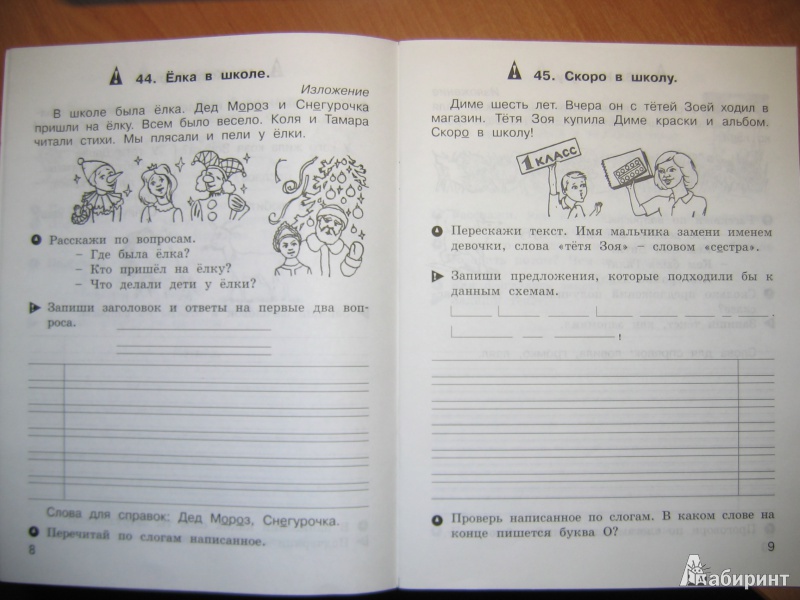 44. Ёлка в школе.
Изложение
В школе была ёлка. Дед Мороз и Снегурочка
пришли на ёлку. Всем было весело. Коля и Тамара
читали стихи. Мы плясали и пели у ёлки.
Расскажи по вопросам.
– Где была ёлка?
– Кто пришёл на ёлку?
– Что делали дети у ёлки?
Запиши заголовок и ответы на первые два воп-
роса.
Слова для справок: Дед Мороз, Снегурочка.
Перечитай по слогам написанное.
8
45. Скоро в школу.
Диме шесть лет. Вчера он с тётей Зоей ходил в
магазин. Тётя Зоя купила Диме краски и альбом.
Скоро в школу!
1 КЛАСС
Перескажи текст. Имя мальчика замени именем
девочки, слова «тётя Зоя» – словом «сестра».
Запиши предложения, которые подходили бы к
данным схемам.
!
Проверь написанное по слогам. В каком слове на
конце пишется буква О?
9
Лабиринт